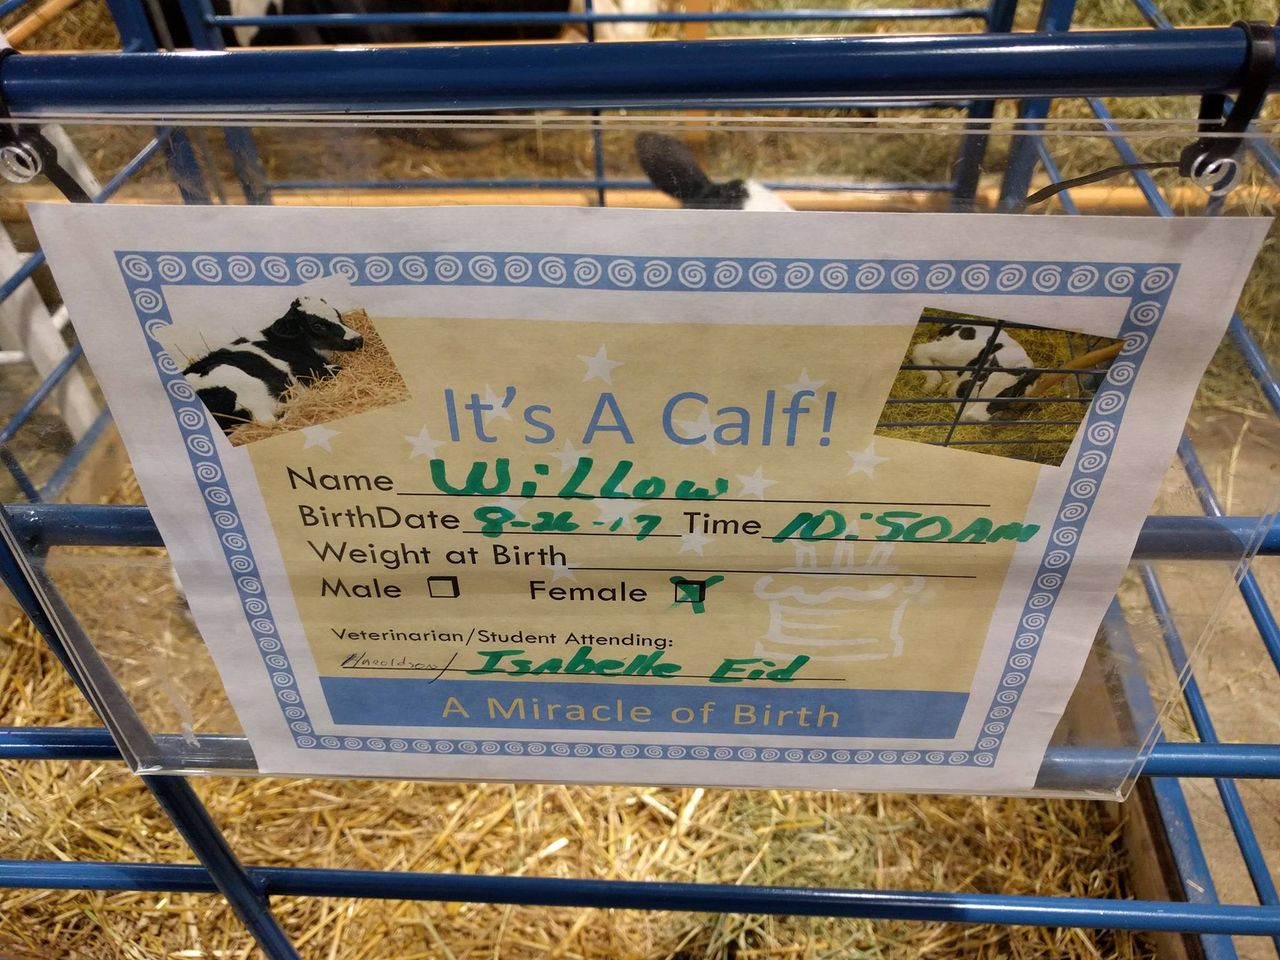 It's A Calf!
Name Willow
BirthDate 8-26-17 Time 10:50 AM
Weight at Birth
Male Female
Veterinarian/Student Attending:
Haroldson/ Isabelle Eid
A Miracle of Birth